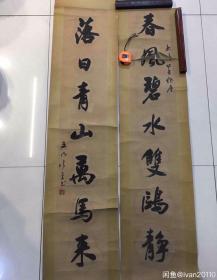 春風碧水雙鷗静
落日青山萬馬来
闲鱼@ivan20110